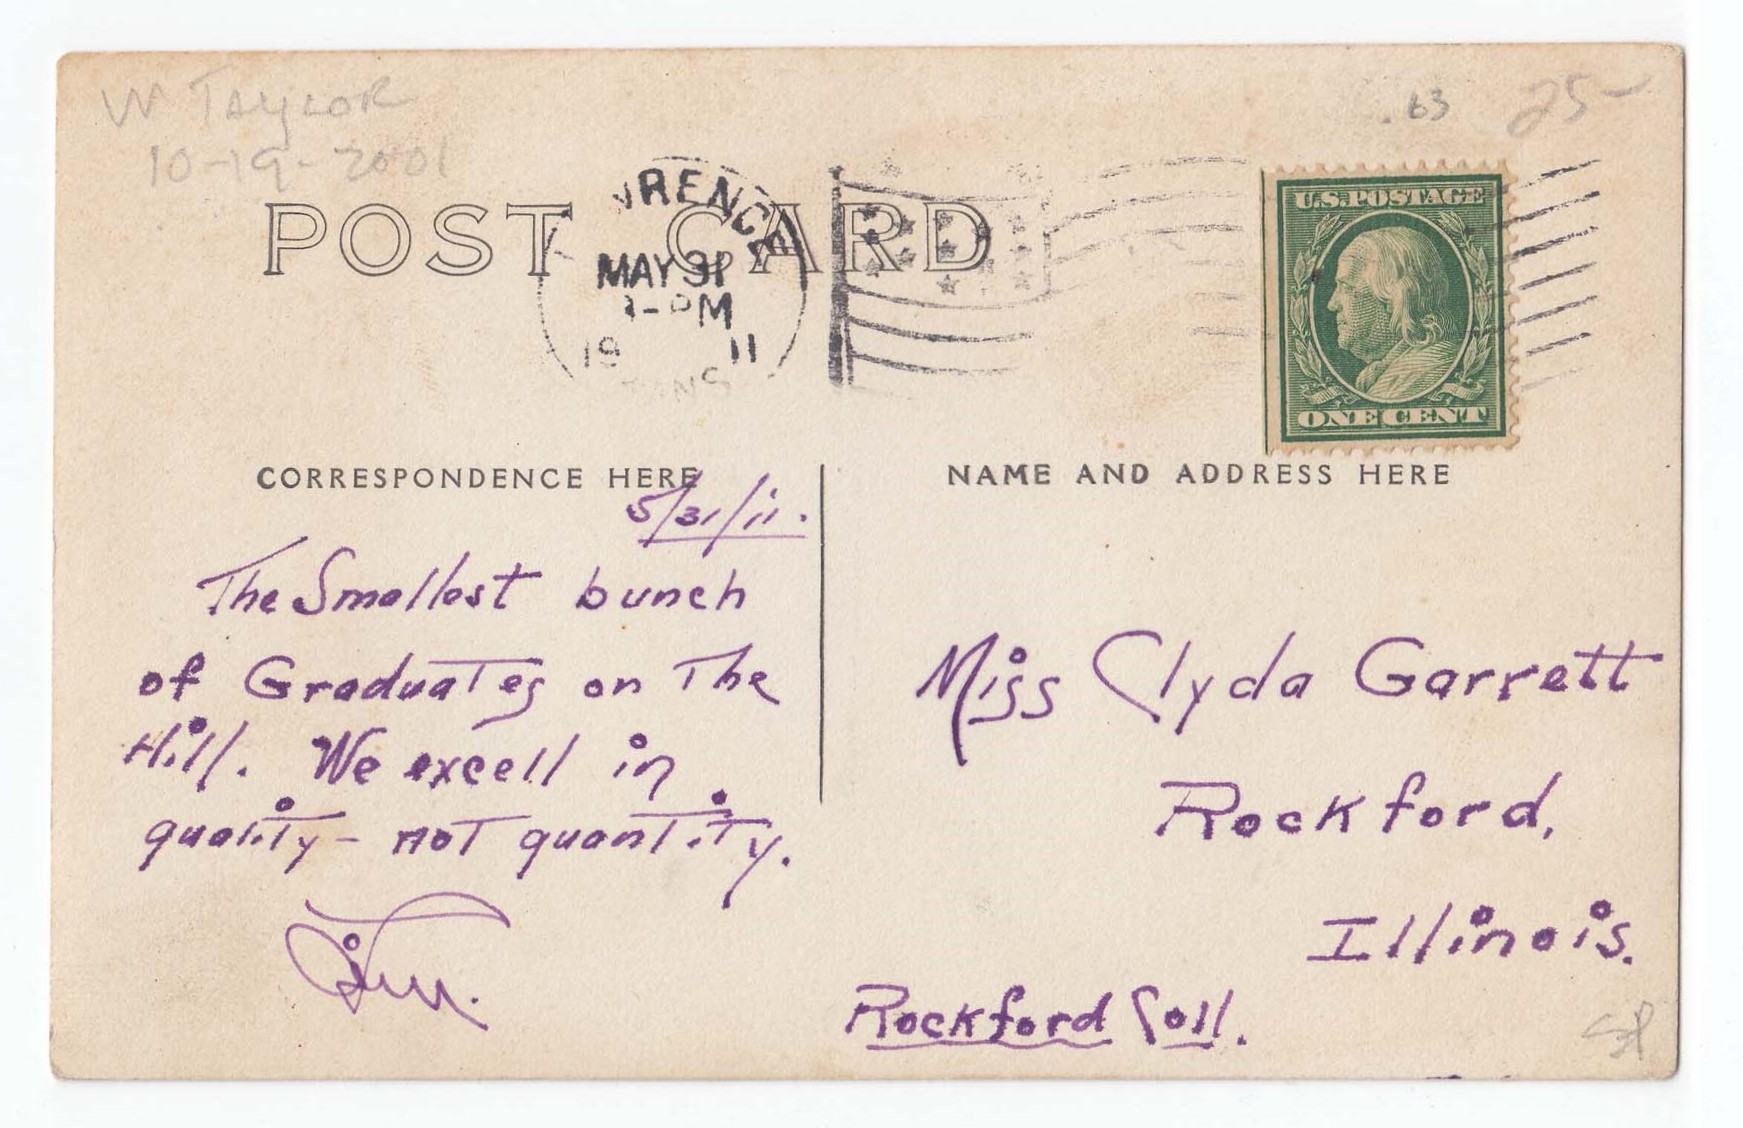 W Taylor
10-19-2001
.63
25-
POST CARD
WRENCE
MAY 31
-PM
19 11
ANS
U.S. POSTAGE
ONE CENT
CORRESPONDENCE HERE
NAME AND ADDRESS HERE
5/31/11.
The Smallest bunch
of Graduates on The
Hill. We excell in
quality - not quantity.
Jim.
Miss Clyda Garrett
Rockford,
Illinois.
Rockford Coll.